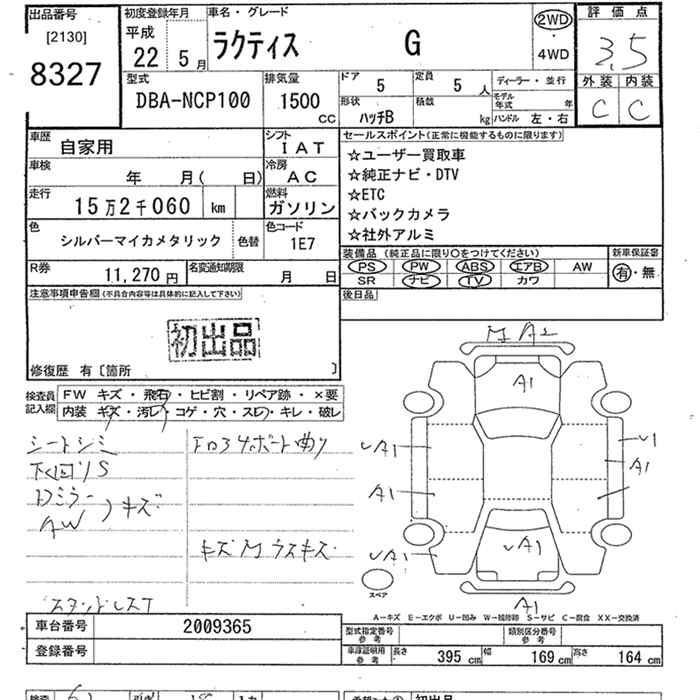 出品番号
[2130]
8327
初度登録年月
平成
22 5月
車名・グレード
ラクティス G
2WD
4WD
評価点
3.5
外装 内装
C C
型式
DBA-NCP100
排気量
1500
CC
ドア
5
定員
5 人
形状
ハッチB
積載
kg
ディーラー・並行
モデル年式 年
ハンドル 左・右
車歴
自家用
シフト
IAT
車検
年 月( 日)
冷房
AC
走行
15万2千060 km
燃料
ガソリン
色
シルバーマイカメタリック
色替
色コード
1E7
R券
11,270 円
名変通知期限
月 日
セールスポイント(正常に機能するものに限ります)
☆ユーザー買取車
☆純正ナビ・DTV
☆ETC
☆バックカメラ
☆社外アルミ
装備品(純正品に限り○をつけてください)
PS PW ABS エアB AW
SR ナビ TV カワ
新車保証書
有・無
後日品
注意事項申告欄(不具合内容等は具体的に記入して下さい)
初出品
修復歴 有〔箇所 〕
検査員記入欄
FW キズ・飛石・ヒビ割・リペア跡・×要
内装 キズ・汚レ・コゲ・穴・スレ・キレ・破レ
シートシミ
下回りS
ミラー
AW
キズ
ボード曲り
キズM ウスキズ
A2
A1
A1
A1
A1
A1
A1
A1
A1
スペア
A-キズ E-エクボ U-凹み W-補修跡 S-サビ C-腐食 XX-交換済
車台番号
2009365
登録番号
型式指定番号
参考
類別区分番号
参考
車庫証明用
参考
長さ 395 cm
幅 169 cm
高さ 164 cm
初出品